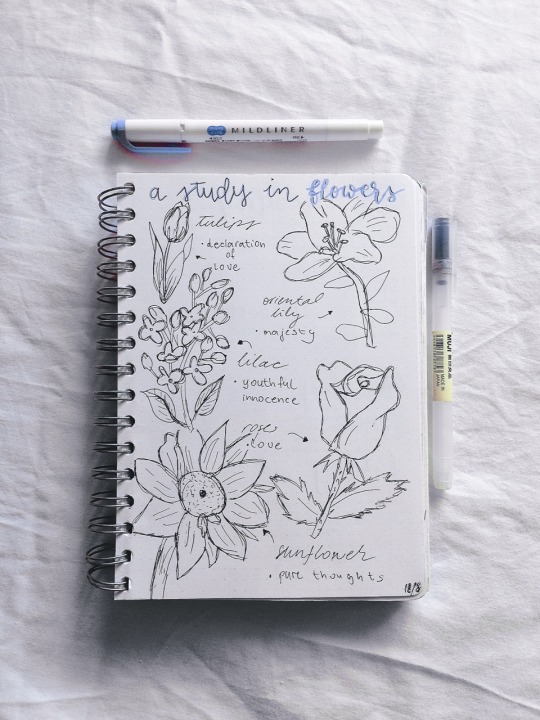 MILDLINER
a study in flowers
tulips
• declaration
of
love
oriental
lily
• majesty
lilac
• youthful
innocence
rose
• love
sunflower
• pure thoughts
18/8
MUJI
MADE IN
JAPAN